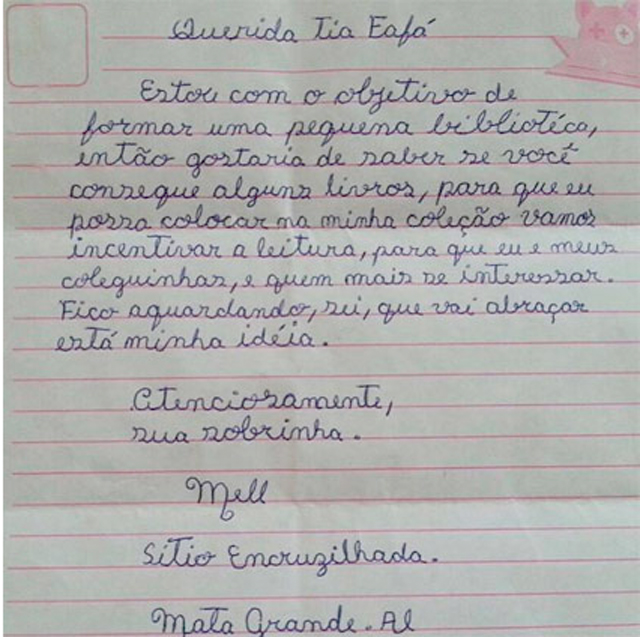 Querida Tia Eafá
Estou com o objetivo de
formar uma pequena bibliotéca,
então gostaria de saber se você
consegue alguns livros, para que eu
possa colocar na minha coleção vamos
incentivar a leitura, para que eu e meus
coleguinhas, e quem mais se interessar.
Fico aguardando, sei, que vai abraçar
está minha idéia.
Atenciosamente,
sua sobrinha.
Mell
Sítio Encruzilhada.
Mata Grande. Al